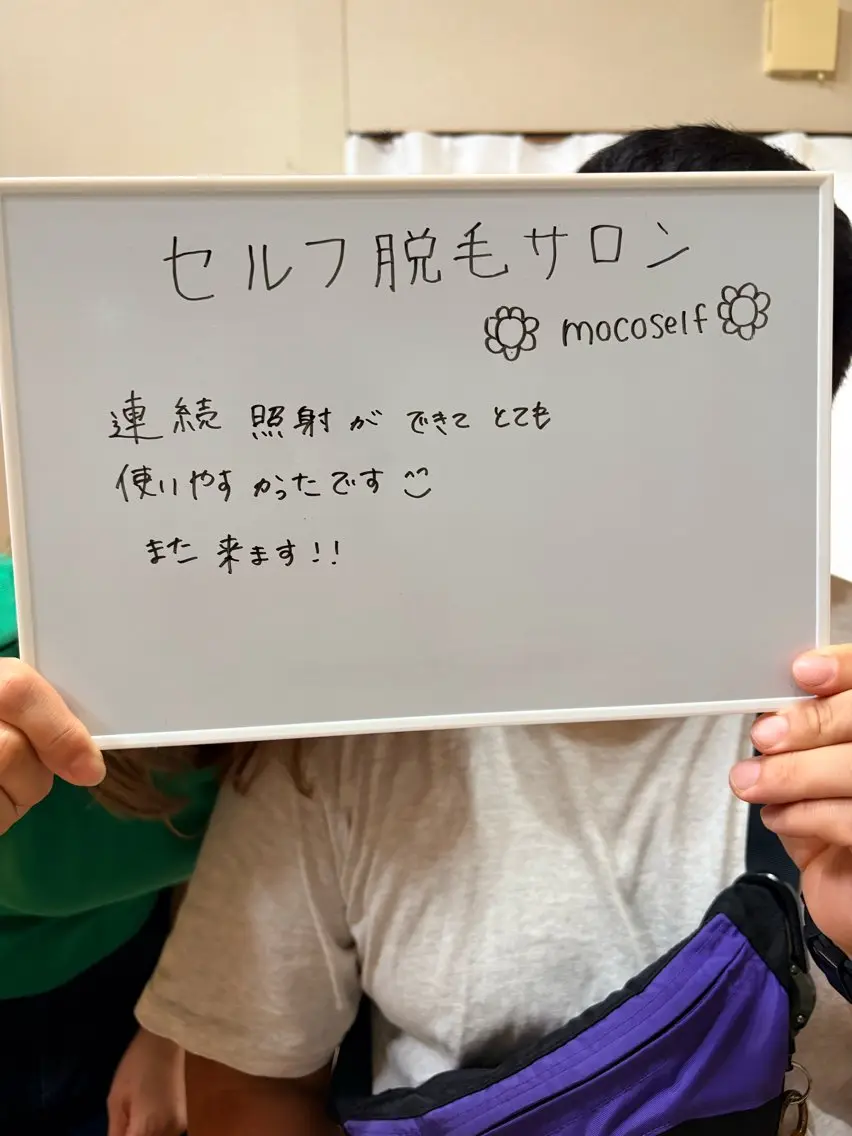 セルフ脱毛サロン
mocoself
連続照射ができてとても
使いやすかったです
また来ます!!